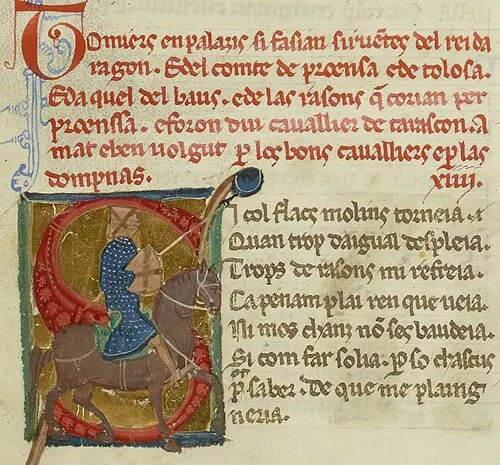 Tomiers en palazis si fasian siruētes del rei da
ragon. Edel comte de proensa ede tolosa.
Eda quel del baus. ede las rasons q̄ corian per
proenssa. eforon dui cauallier de tarascon. A
mat eben uolgut ꝑ los bons cauallliers eplas
dompnas. xiiii.
Si col flacs molins torneia. a
Quan trop daigual despleia.
Trops de rasons mi refreia.
Ca penam plai ren que ueia.
Ni mos chanz nō ses baudeia.
Si com far solia. ꝑ so chascus
ꝑ saber. De que me plaing
neria.